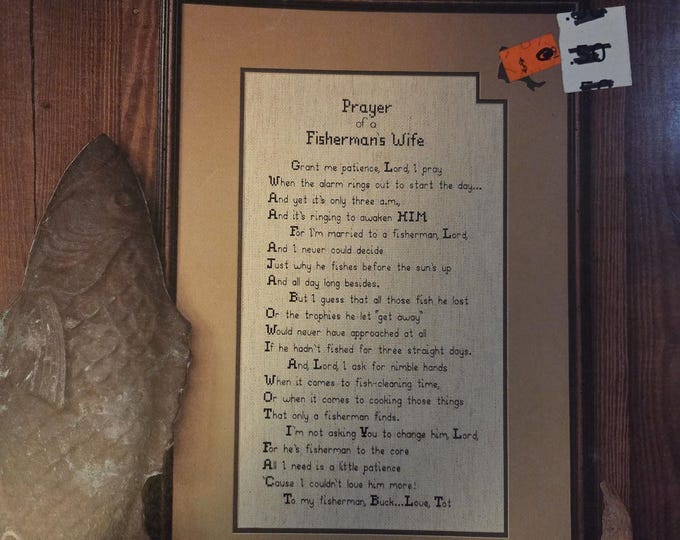 Prayer
of a
Fisherman's Wife
Grant me patience, Lord, I pray
When the alarm rings out to start the day...
And yet it's only three a.m.,
And it's ringing to awaken HIM.
For I'm married to a fisherman, Lord,
And I never could decide
Just why he fishes before the sun's up
And all day long besides.
But I guess that all those fish he lost
Or the trophies he let "get away"
Would never have approached at all
If he hadn't fished for three straight days.
And, Lord, I ask for nimble hands
When it comes to fish-cleaning time,
Or when it comes to cooking those things
That only a fisherman finds.
I'm not asking You to change him, Lord,
For he's fisherman to the core
All I need is a little patience
'Cause I couldn't love him more!
To my fisherman, Buck...Love, Tot
$